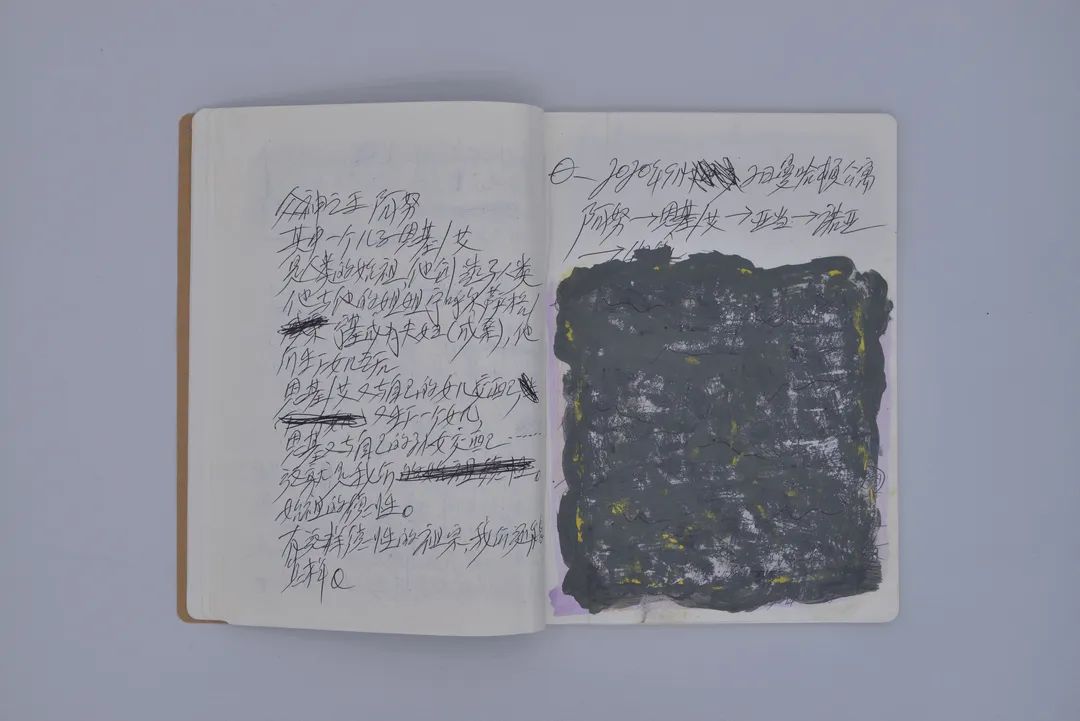 众神之王 阿努
其中一个儿子恩基/艾
是人类的始祖,他创造了人类
他与他的姐姐宁呼尔萨格/
谋成为夫妇(成亲),他
们生下女儿之后
恩基/艾又与自己的女儿交配,
又生下一个女儿
恩基又与自己的孙女交配……
这就是我们
始祖的德性。
有这样德性的祖宗,我们还能
怎样
2020年9月 2日曼哈顿公寓
阿努→恩基/艾→亚当→诺亚
→